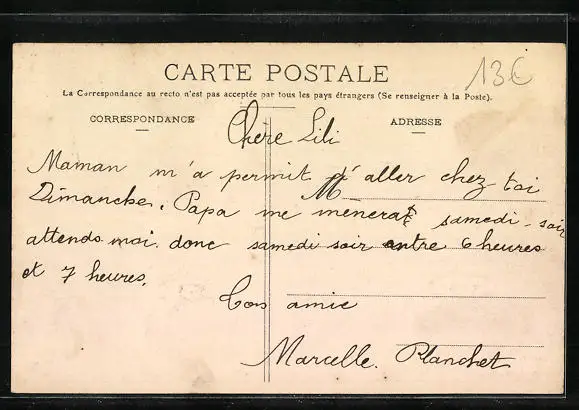 CARTE POSTALE
13€
La Correspondance au recto n'est pas acceptée par tous les pays étrangers (Se renseigner à la Poste).
CORRESPONDANCE
ADRESSE
Chere Lili
Maman m'a permit d'aller chez toi
M
Dimanche. Papa me menerat samedi-soir
attends moi donc samedi soir entre 6 heures
et 7 heures.
Ton amie
Marcelle. Planchet